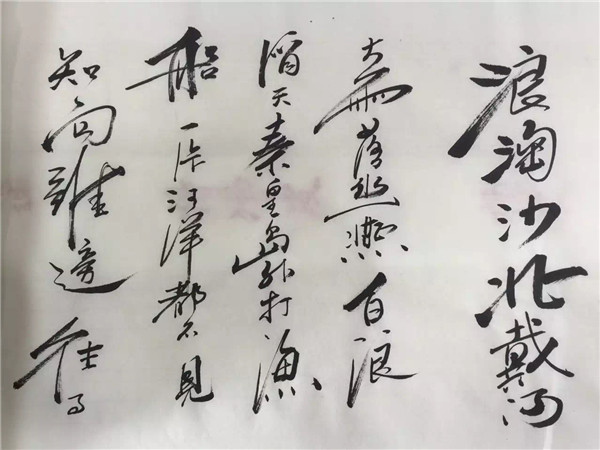 浪淘沙北戴河
大雨落幽燕白浪
滔天秦皇島外打漁
船一片汪洋都不見
知向誰邊往事